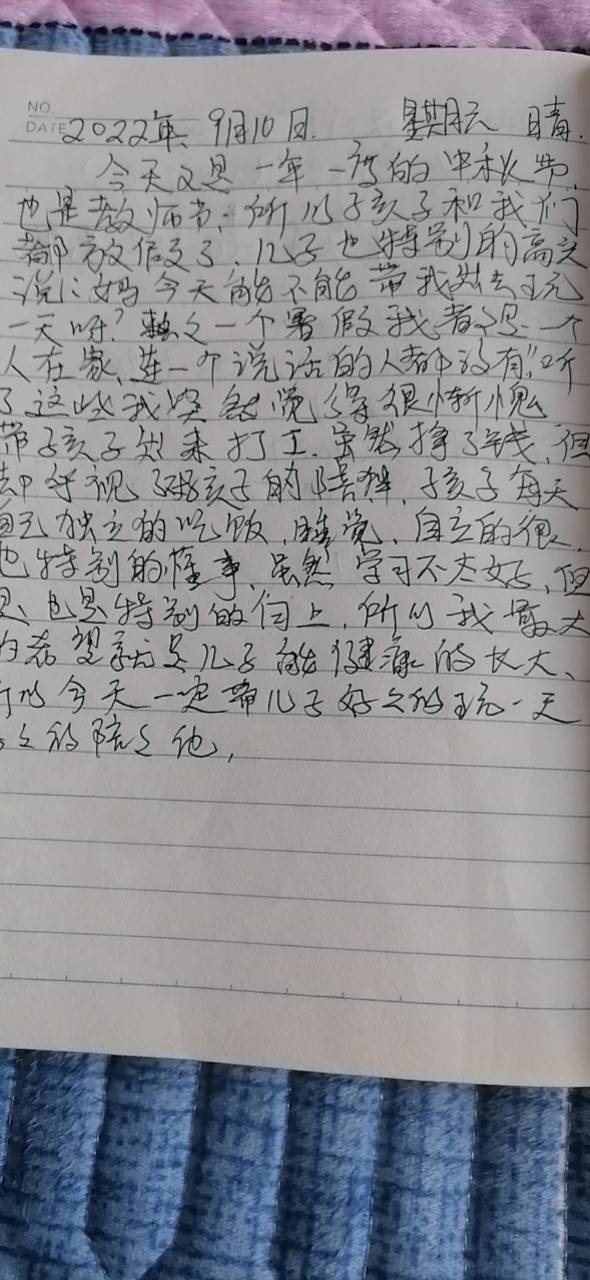 NO.
DATE 2022年、9月10日. 星期六 晴.
今天又是一年一度的中秋节,
也是教师节、所以孩子和我们
都放假了、儿子也特别的高兴
说:妈今天能不能带我出去玩
一天呀?整个一个暑假我都是一个
人在家、连一个说话的人都没有"听
了这些我突然觉得很惭愧
带孩子出来打工.虽然挣了钱、但
却忽视了孩子的陪伴、孩子每天
自己独立的吃饭、睡觉、自立的很、
也特别的懂事、虽然学习不太好、但
是、也是特别的向上、所以我最大
的希望就是儿子能健康的长大、
所以今天一定带儿子好々的玩一天
々的陪々他,